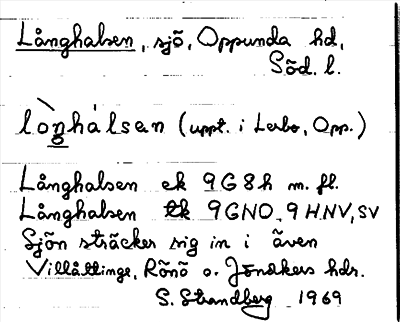 Långhalsen, sjö, Oppunda hd,
Söd. l.
lòŋhálsen (uppt. i Lerbo, Opp.)
Långhalsen ek 9G8h m. fl.
Långhalsen tk 9GNO, 9HNV, SV
Sjön sträcker sig in i även
Villåttinge, Rönö o. Jönåkers hdr.
S. Strandberg 1969